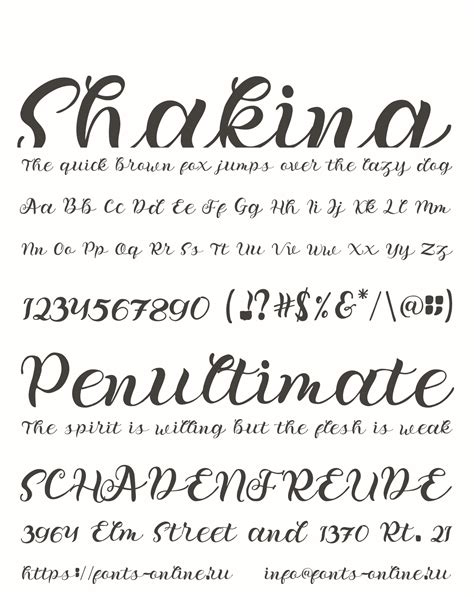 Shakina
The quick brown fox jumps over the lazy dog
Aa Bb Cc Dd Ee Ff Gg Hh Ii Jj Kk Ll Mm
Nn Oo Pp Qq Rr Ss Tt Uu Vv Ww Xx Yy Zz
1234567890 (!?#$%&*/\@:;)
Penultimate
The spirit is willing but the flesh is weak
SCHADENFREUDE
3964 Elm Street and 1370 Rt. 21
https://fonts-online.ru info@fonts-online.ru